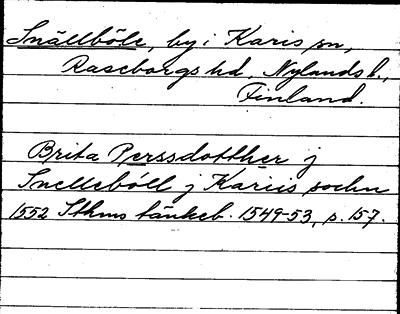 Snällböle, by i Karis sn,
Raseborgs hd, Nylands l.,
Finland.
Brita Perssdotther j
Snellebóll j Kariis sochn
1552 Sthms tänkeb. 1549-53, s. 157.